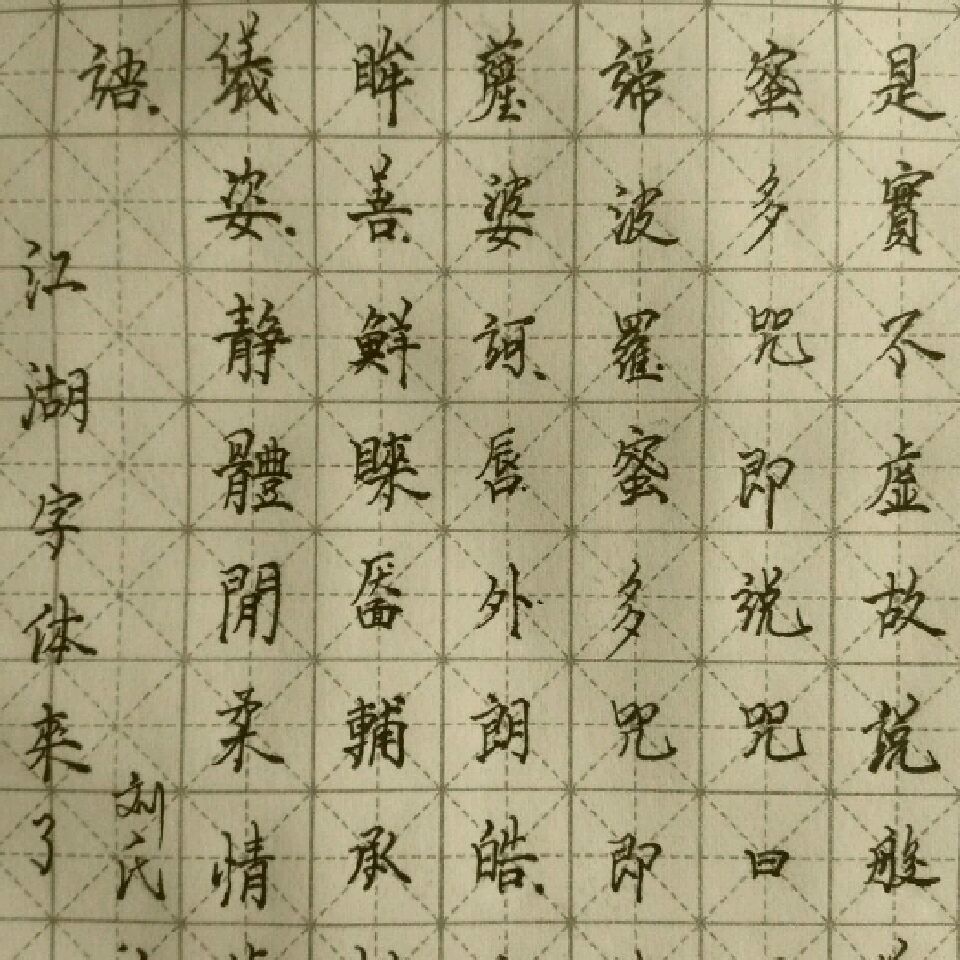 是實不虛故說般
蜜多咒即說咒曰
諦波羅蜜多咒即
薩婆訶、唇外朗皓、
眸善、鮮睞靨輔承
儀姿、静體閒柔情
語、
刘氏
江湖字体来了